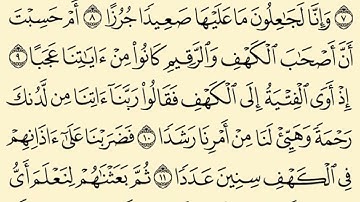 ٧ وَإِنَّا لَجَٰعِلُونَ مَا عَلَيْهَا صَعِيدًا جُرُزًا ٨ أَمْ حَسِبْتَ
أَنَّ أَصْحَٰبَ ٱلْكَهْفِ وَٱلرَّقِيمِ كَانُوا۟ مِنْ ءَايَٰتِنَا عَجَبًا ٩
إِذْ أَوَى ٱلْفِتْيَةُ إِلَى ٱلْكَهْفِ فَقَالُوا۟ رَبَّنَآ ءَاتِنَا مِن لَّدُنكَ
رَحْمَةً وَهَيِّئْ لَنَا مِنْ أَمْرِنَا رَشَدًا ١٠ فَضَرَبْنَا عَلَىٰٓ ءَاذَانِهِمْ
فِى ٱلْكَهْفِ سِنِينَ عَدَدًا ١١ ثُمَّ بَعَثْنَٰهُمْ لِنَعْلَمَ أَىُّ